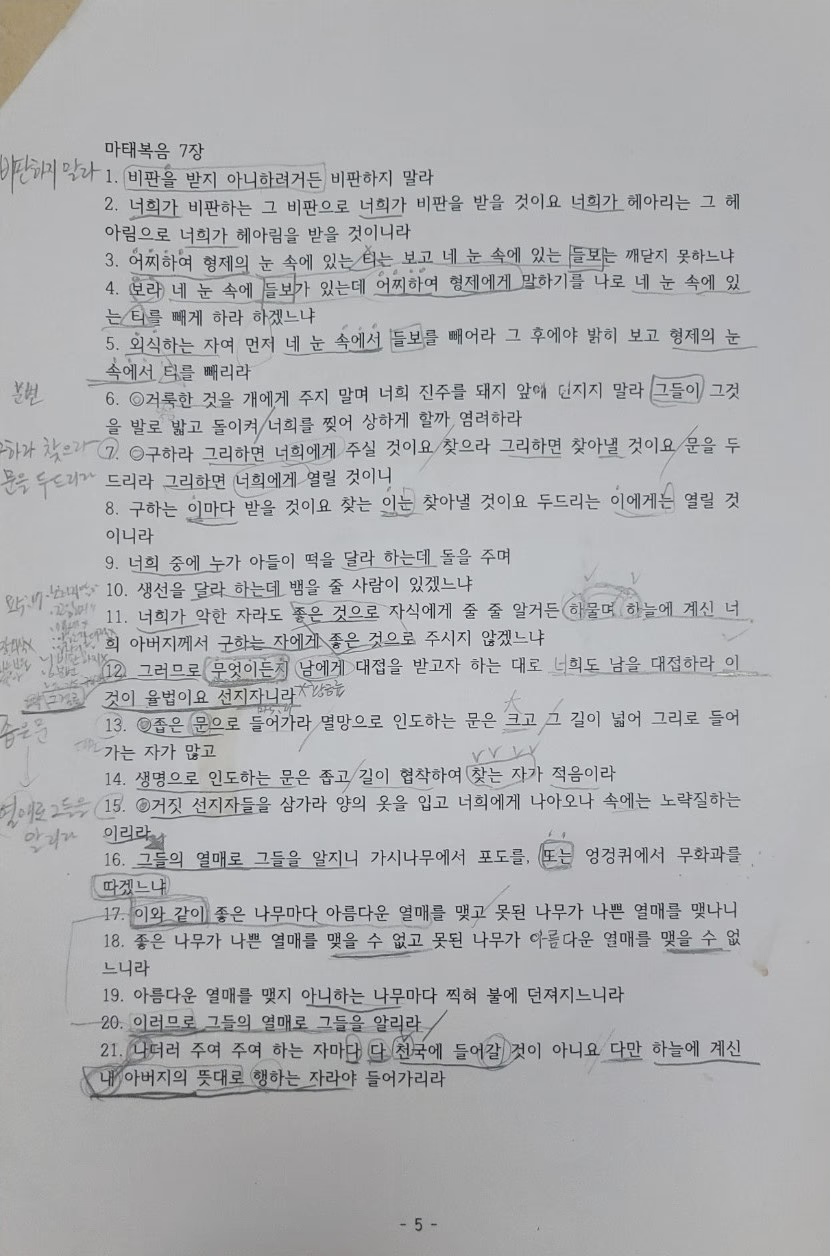 마태복음 7장
비판하지 말라
1. 비판을 받지 아니하려거든 비판하지 말라
2. 너희가 비판하는 그 비판으로 너희가 비판을 받을 것이요 너희가 헤아리는 그 헤
아림으로 너희가 헤아림을 받을 것이니라
3. 어찌하여 형제의 눈 속에 있는 티는 보고 네 눈 속에 있는 들보는 깨닫지 못하느냐
4. 보라 네 눈 속에 들보가 있는데 어찌하여 형제에게 말하기를 나로 네 눈 속에 있
는 티를 빼게 하라 하겠느냐
5. 외식하는 자여 먼저 네 눈 속에서 들보를 빼어라 그 후에야 밝히 보고 형제의 눈
속에서 티를 빼리라
분변
6. ◎거룩한 것을 개에게 주지 말며 너희 진주를 돼지 앞에 던지지 말라 그들이 그것
을 발로 밟고 돌이켜 너희를 찢어 상하게 할까 염려하라
구하라 찾으라
문을 두드리라
7. ◎구하라 그리하면 너희에게 주실 것이요 찾으라 그리하면 찾아낼 것이요 문을 두
드리라 그리하면 너희에게 열릴 것이니
8. 구하는 이마다 받을 것이요 찾는 이는 찾아낼 것이요 두드리는 이에게는 열릴 것
이니라
9. 너희 중에 누가 아들이 떡을 달라 하는데 돌을 주며
10. 생선을 달라 하는데 뱀을 줄 사람이 있겠느냐
11. 너희가 악한 자라도 좋은 것으로 자식에게 줄 줄 알거든 하물며 하늘에 계신 너
희 아버지께서 구하는 자에게 좋은 것으로 주시지 않겠느냐
12. 그러므로 무엇이든지 남에게 대접을 받고자 하는 대로 너희도 남을 대접하라 이
것이 율법이요 선지자니라
좁은문
13. ◎좁은 문으로 들어가라 멸망으로 인도하는 문은 크고 그 길이 넓어 그리로 들어
가는 자가 많고
14. 생명으로 인도하는 문은 좁고 길이 협착하여 찾는 자가 적음이라
열매로 그들을
알리라
15. ◎거짓 선지자들을 삼가라 양의 옷을 입고 너희에게 나아오나 속에는 노략질하는
이리라
16. 그들의 열매로 그들을 알지니 가시나무에서 포도를, 또는 엉겅퀴에서 무화과를
따겠느냐
17. 이와 같이 좋은 나무마다 아름다운 열매를 맺고 못된 나무가 나쁜 열매를 맺나니
18. 좋은 나무가 나쁜 열매를 맺을 수 없고 못된 나무가 아름다운 열매를 맺을 수 없
느니라
19. 아름다운 열매를 맺지 아니하는 나무마다 찍혀 불에 던져지느니라
20. 이러므로 그들의 열매로 그들을 알리라
21. 나더러 주여 주여 하는 자마다 다 천국에 들어갈 것이 아니요 다만 하늘에 계신
내 아버지의 뜻대로 행하는 자라야 들어가리라
- 5 -